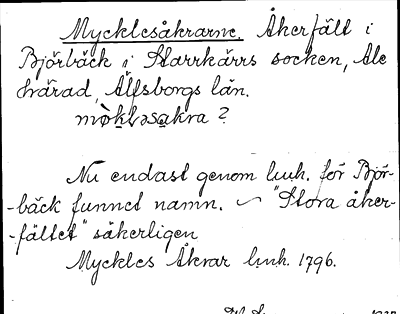 Mycklesåkrarne. Åkerfält i
Björbäck i Starrkärrs socken, Ale
härad, Älfsborgs län.
mòkləsakra ?
Nu endast genom lmh. för Björ-
-bäck funnet namn. ~ "Stora åker-
-fältet" säkerligen
Myckles Åkrar lmh. 1796.